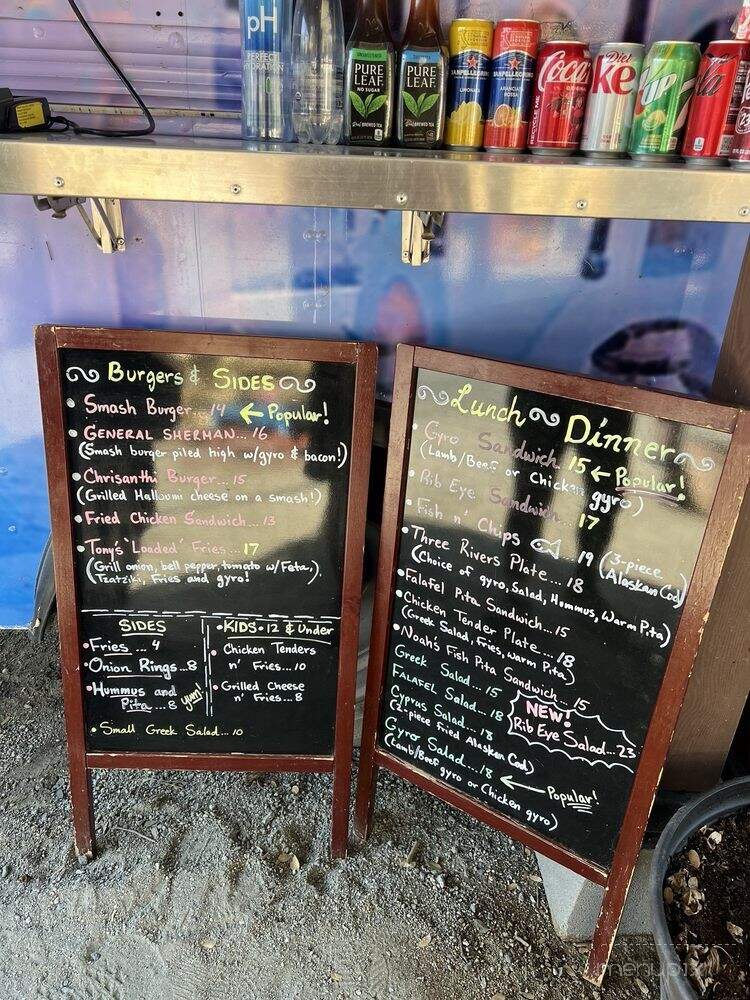 pH
PERFECT
HYDRATION
PURE
LEAF
NO SUGAR
PURE
LEAF
SANPELLEGRINO
LIMONATA
SANPELLEGRINO
ARANCIATA
ROSSA
Coca
Diet
Ke
UP
Burgers & SIDES
Smash Burger... 14 ← Popular!
GENERAL SHERMAN... 16
(Smash burger piled high w/gyro & bacon!)
Chrisanthi Burger... 15
(Grilled Halloumi cheese on a smash!)
Fried Chicken Sandwich... 13
Tony's 'Loaded' Fries... 17
(Grill onion, bell pepper, tomato w/Feta,
Tzatziki, Fries and gyro!)
SIDES
Fries ... 4
Onion Rings...8
Hummus and
Pita ... 8 yum!
Small Greek Salad... 10
KIDS • 12 & Under
Chicken Tenders
n' Fries... 10
Grilled Cheese
n' Fries... 8
Lunch Dinner
Gyro Sandwich 15 ← Popular!
(Lamb/Beef or Chicken gyro)
Rib Eye Sandwich... 17
Fish n' Chips ... 19 (3-piece
Alaskan Cod)
Three Rivers Plate... 18
(Choice of gyro, Salad, Hummus, Warm Pita)
Falafel Pita Sandwich... 15
Chicken Tender Plate... 18
(Greek Salad, Fries, warm Pita)
Noah's Fish Pita Sandwich... 15
Greek Salad... 15
FALAFEL Salad... 18
Cyprus Salad... 18
(2-piece fried Alaskan Cod)
Gyro Salad... 18 ← Popular!
(Lamb/Beef gyro or Chicken gyro)
NEW!
Rib Eye Salad... 23
menupix